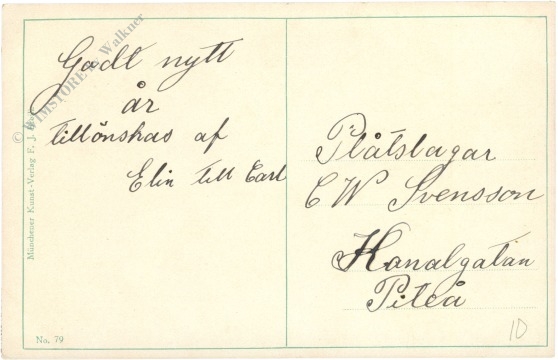 Godt nytt
år
tillönskas af
Elin till Carl
Plåtslagar
C W Svensson
Kanalgatan
Piteå
Münchener Kunst-Verlag F. J.
No. 79
10